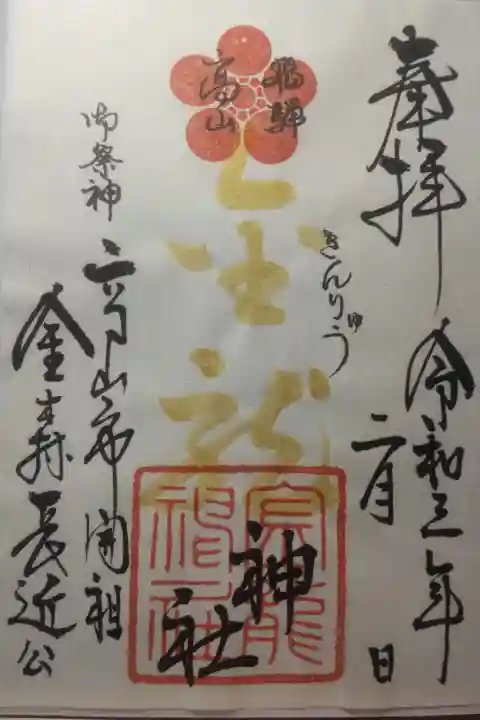 奉拝
令和三年
二月　日
飛騨
高山
きんりゅう
金龍
神社
御祭神
高山市開祖
金森長近公